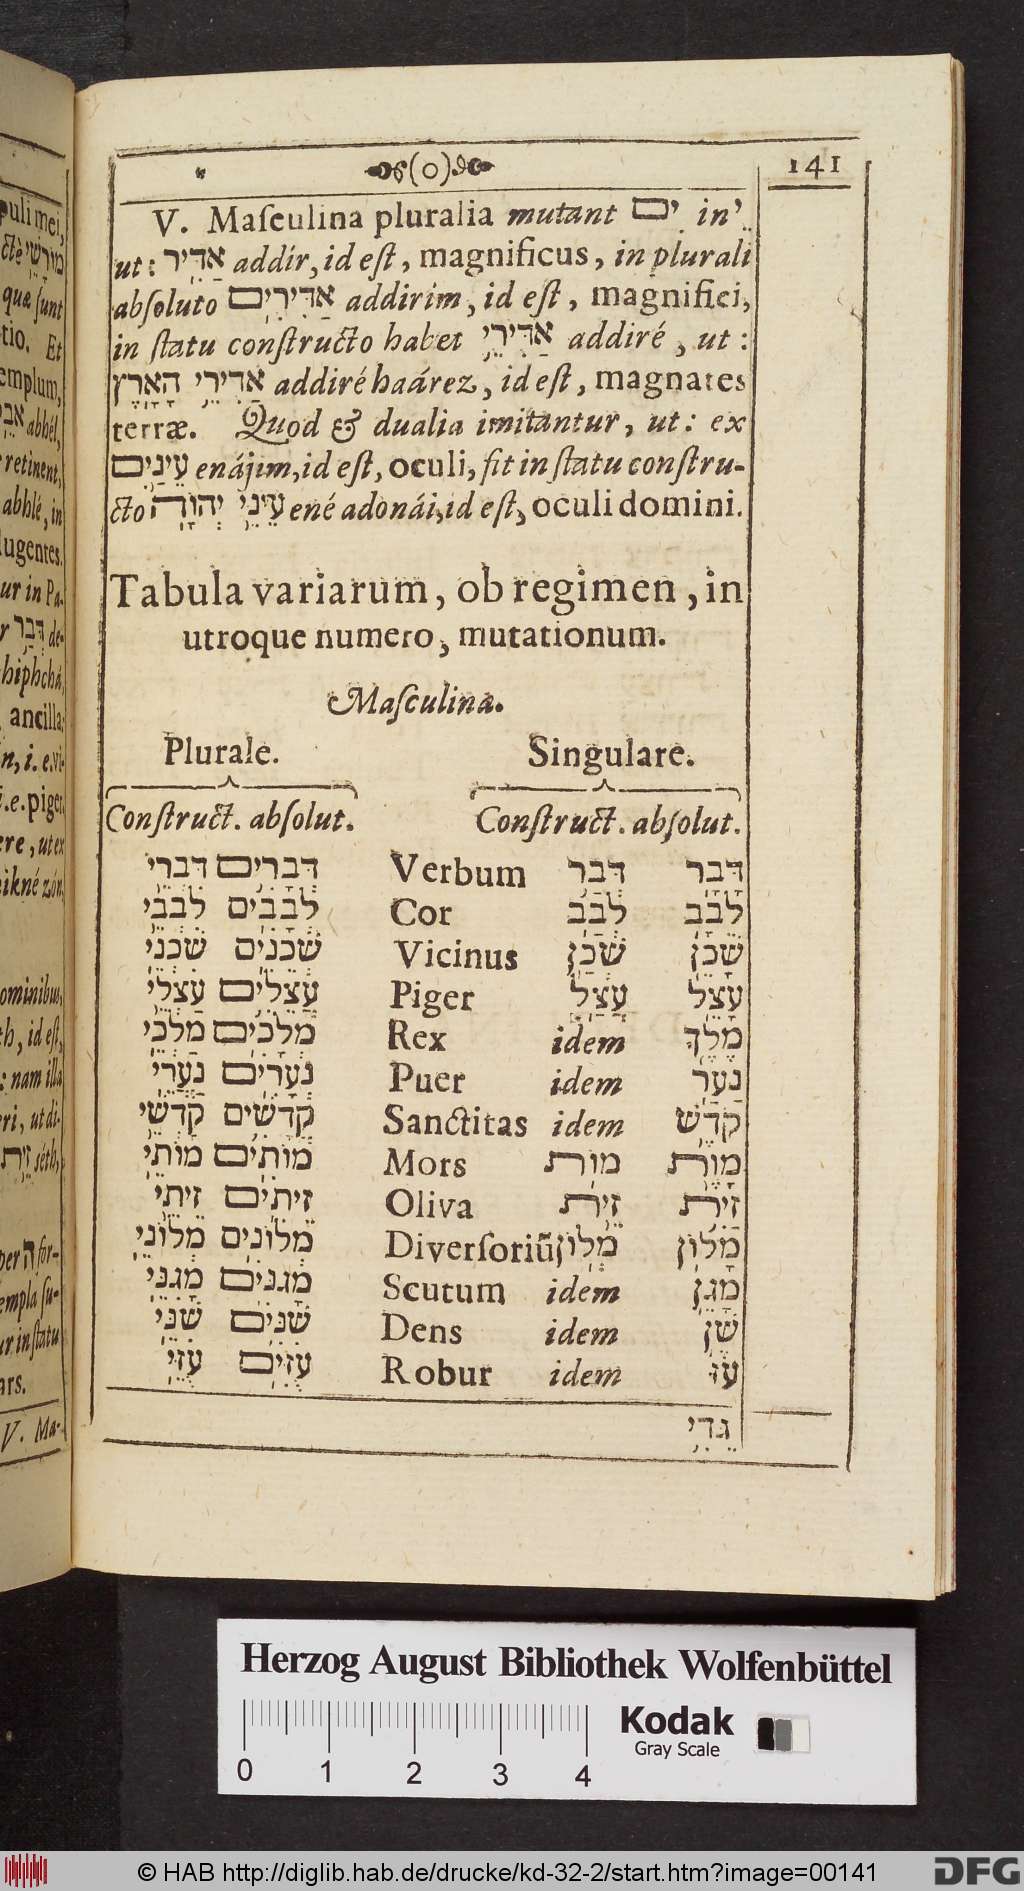 (o) 141
V. Maſculina pluralia mutant ים in יֵ
ut: אַדִּיר addir, id eſt, magnificus, in plurali
abſoluto אַדִּירִים addirim, id eſt, magnifici,
in ſtatu conſtructo habet אַדִּירֵי addiré, ut:
אַדִּירֵי הָאָרֶץ addiré haárez, id eſt, magnates
terræ. Quod & dualia imitantur, ut: ex
עֵינַיִם enájim, id eſt, oculi, fit in ſtatu conſtru-
cto עֵינֵי יְהוָֹה ené adonái, id eſt, oculi domini.
Tabula variarum, ob regimen, in
utroque numero, mutationum.
Maſculina.
Plurale. Singulare.
Conſtruct. abſolut. Conſtruct. abſolut.
דִּבְרֵי דְּבָרִים Verbum דְּבַר דָּבָר
לִבְבֵי לְבָבִים Cor לְבַב לָבָב
שִׁכְנֵי שְׁכֵנִים Vicinus שְׁכַן שָׁכֵן
עַצְלֵי עֲצֵלִים Piger עֲצַל עָצֵל
מַלְכֵי מְלָכִים Rex idem מֶלֶךְ
נַעֲרֵי נְעָרִים Puer idem נַעַר
קָדְשֵׁי קֳדָשִׁים Sanctitas idem קֹדֶשׁ
מוֹתֵי מוֹתִים Mors מוֹת מָוֶת
זֵיתֵי זֵיתִים Oliva זֵית זַיִת
מְלוֹנֵי מְלוֹנִים Diverſoriū מְלוֹן מָלוֹן
מָגִנֵּי מָגִנִּים Scutum idem מָגֵן
שִׁנֵּי שִׁנִּים Dens idem שֵׁן
עֻזֵּי עֻזִּים Robur idem עֹז
גְּדִי
puli mei,
quæ ſunt
tio. Et
emplum,
abhél,
retinent,
abhlé, in
lugentes.
ur in Pa-
r דְּבַר de-
hiphchá,
ancilla:
n, i. e. vi-
i. e. piger,
ere, ut ex
ikné zón,
ominibus,
th, id eſt,
: nam illa
eri, ut di-
זֵית séth,
per ה for-
empla ſu-
ur in ſtatu
ars.
V. Ma-
Herzog August Bibliothek Wolfenbüttel
Kodak
Gray Scale
0 1 2 3 4
© HAB http://diglib.hab.de/drucke/kd-32-2/start.htm?image=00141
DFG